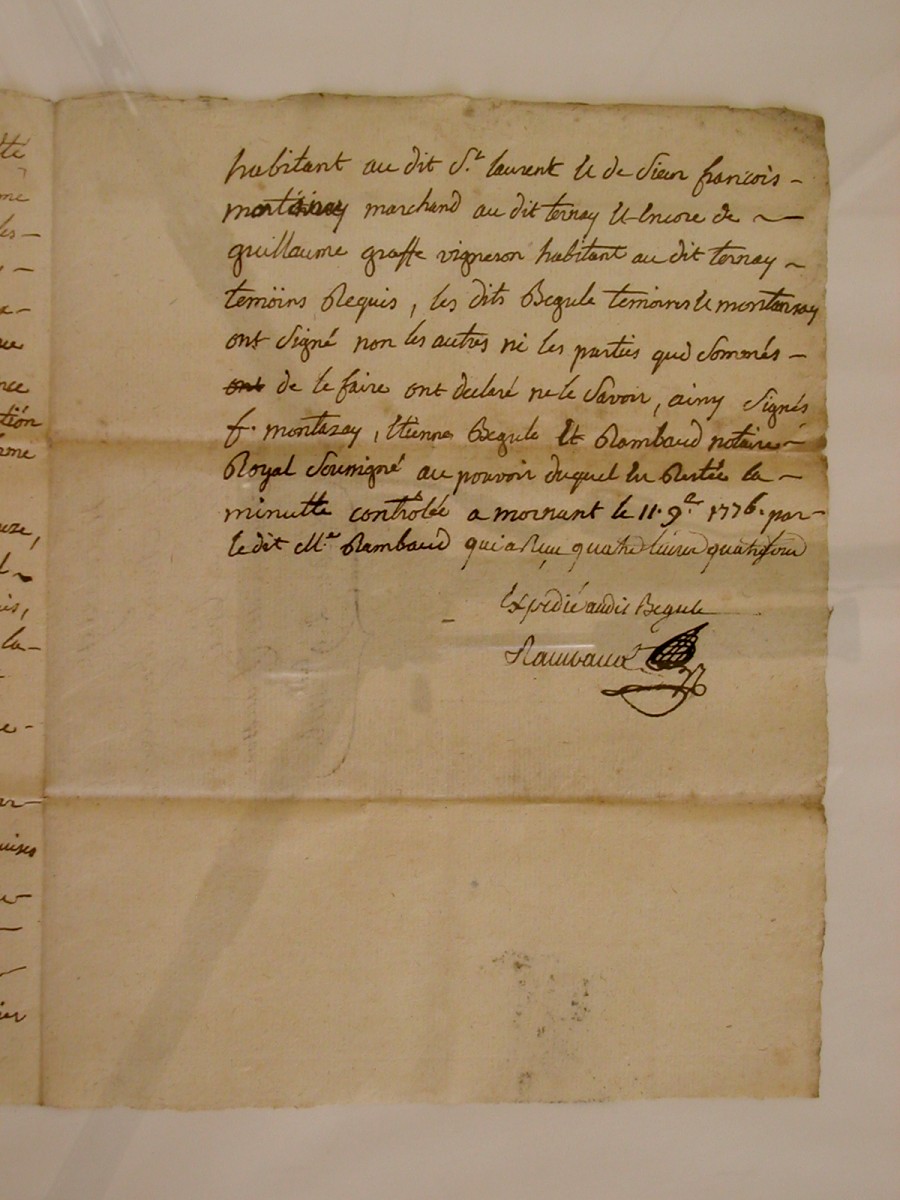 tté
me
les-
nce
tión
uze,
la-
habitant au dit S.t laurent & de Sieur francois-
marchand au dit ternay & Encore de ~
guillaume graffe vigneron habitant au dit ternay ~
temöins Requis, les dits Begule temoins & montazay
ont Signé non les autres ni les parties qud Sommés -
ont de le faire ont declaré ne le Savoir, ainy Signés
f. montazay, Etienne Begule Et Rambaud notaire-
Royal Soussigné au pouvoir duquel En Restée la -
minutte controlée a mornant le 11. 9.bre 1776. par-
le dit M.e Rambaud qui a Reçu quatre livres quatre sous
Expedié audit Begule
Rambaud